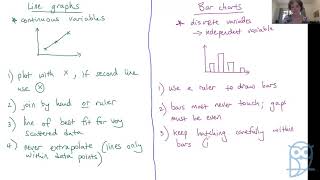 Line graphs
* continuous variables
1) plot with x, if second line
use ⊗
2) join by hand or ruler
3) line of best fit for very
scattered data
4) never extrapolate (lines only
within data points)
Bar charts
* discrete variables
→ independent variable
1) Use a ruler to draw bars
2) bars must never touch; gaps
must be even
3) keep hatching carefully within
bars (i